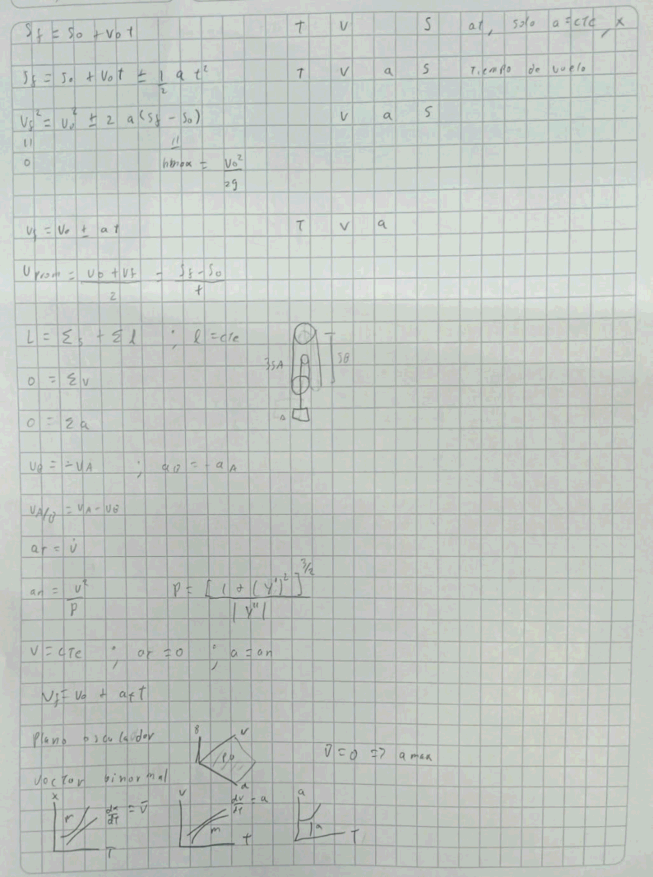 Sf = So + Vo t    T    V    S    at, solo a = cte, x
Sf = So + Vo t ± 1/2 a t²    T    V    a    S    Tiempo de vuelo
Vf² = Vo² ± 2 a (Sf - So)    V    a    S
|| ||
0    hmax = Vo²/2g
Vf = Vo ± at    T    V    a
Vprom = (Vo + Vf)/2 = (Sf - So)/t
L = Σs + Σl ; l = cte
3SA    SB
0 = Σv
0 = Σa
A
VB = -VA ; aB = -aA
VA/B = VA - VB
at = v̇
an = v²/ρ    ρ = [1 + (Y')²]^3/2 / |Y''|
V = cte ; at = 0 ; a = an
Vf = Vo + at t
Plano osculador    B    V    PO    a    V = 0 => amax
Vector binormal
x    m    dx/dt = V    T
V    m    dv/dt = a    t
a    a    T